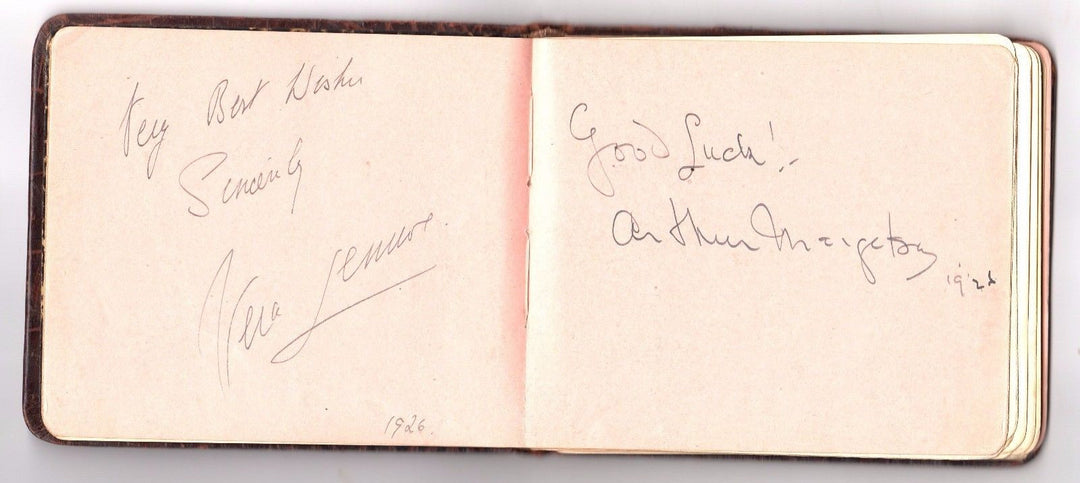 Very Best Wishes
Sincerely
Vera Lennox.
1926.
Good Luck!
Arthur Margetson
1926